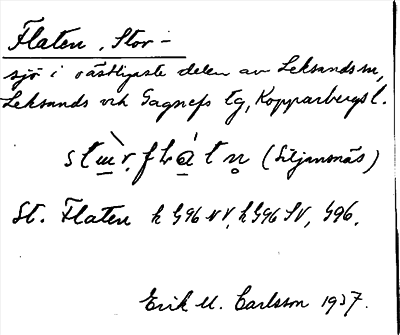 Flaten, Stor-
sjö i västligaste delen av Leksands sn,
Leksands och Gagnefs tg, Kopparbergs l.
(Siljansnäs)
St. Flaten k G96 NV, k G96 SV, G96.
Erik M. Carlsson 1937.